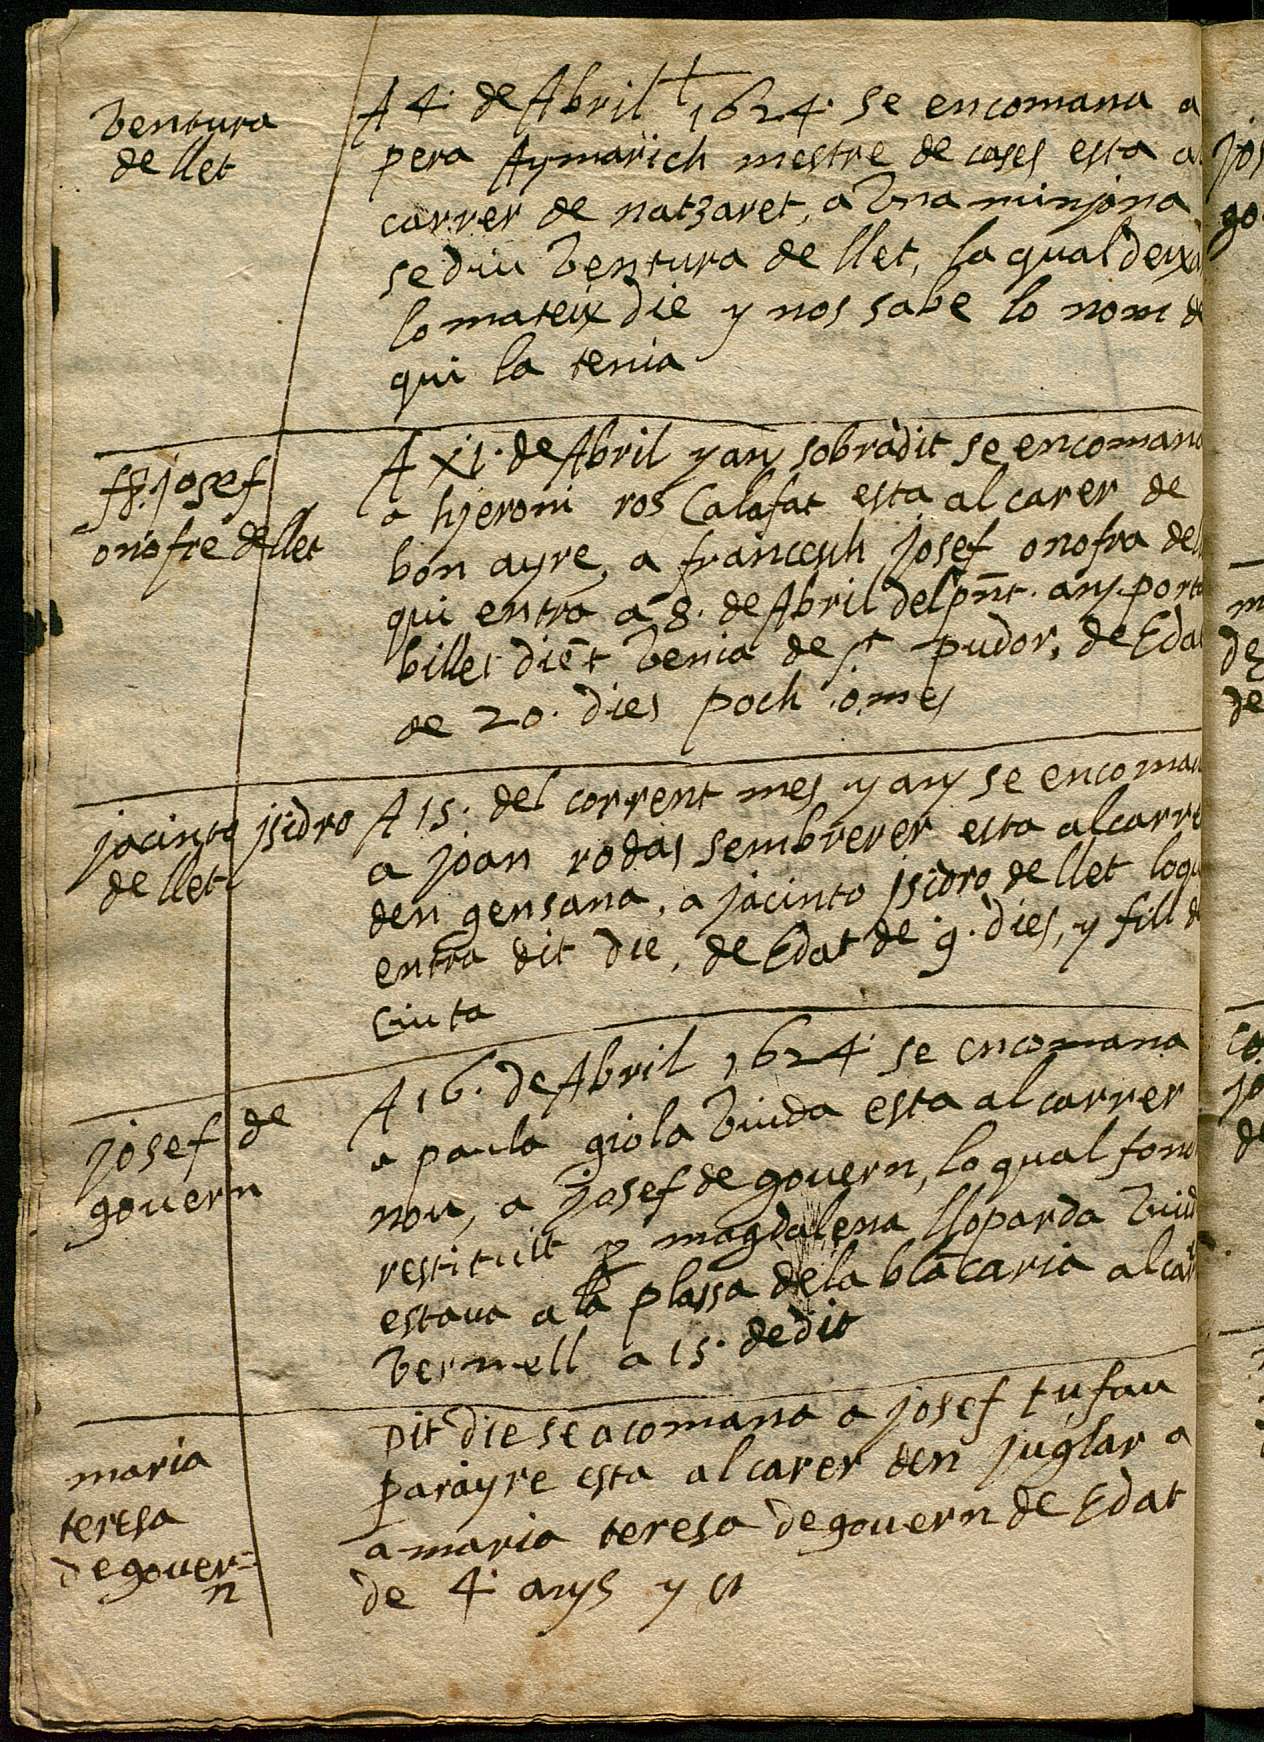 Ventura
de llet
A 4. de Abril 1624. se encomana a
pera Aymarich mestre de cases esta al
carrer de natzaret, a Vna minjona
se diu Ventura de llet, la qual deixa
lo mateix die y nos sabe lo nom de
qui la tenia
fr. josef
onofre de llet
A XI. de Abril y any sobradit se encomana
a hjeroni ros Calafat esta al carer de
bon ayre, a francesch josef onofra de
qui entra a 8. de Abril del pñt. any. porta
billet diēt Venia de st pudor, de Edat
de 20. dies poch .o mes
jacinto jsidro
de llet
A 15. del corrent mes y any se encomana
a joan rodas sembrerer esta al carrer
den gensana, a jacinto jsidro de llet loqu
entra dit die, de Edat de 9. dies, y fill de
Ciuta
josef de
gouern
A 16. de Abril 1624. se encomana
a paula giola Viuda esta al carrer
nou, a josef de gouern, lo qual fonc
restituit p magdalena lloparda Viud
estaua a la plassa de la blācaria al carr
Vermell a 15. de dit
maria
teresa
de gouer=
n
Dit die se acomana a josef tufau
parayre esta al carer den juglar a
a maria teresa de gouern de Edat
de 4. anys y
jos
go
m
de
de
co
jo
de